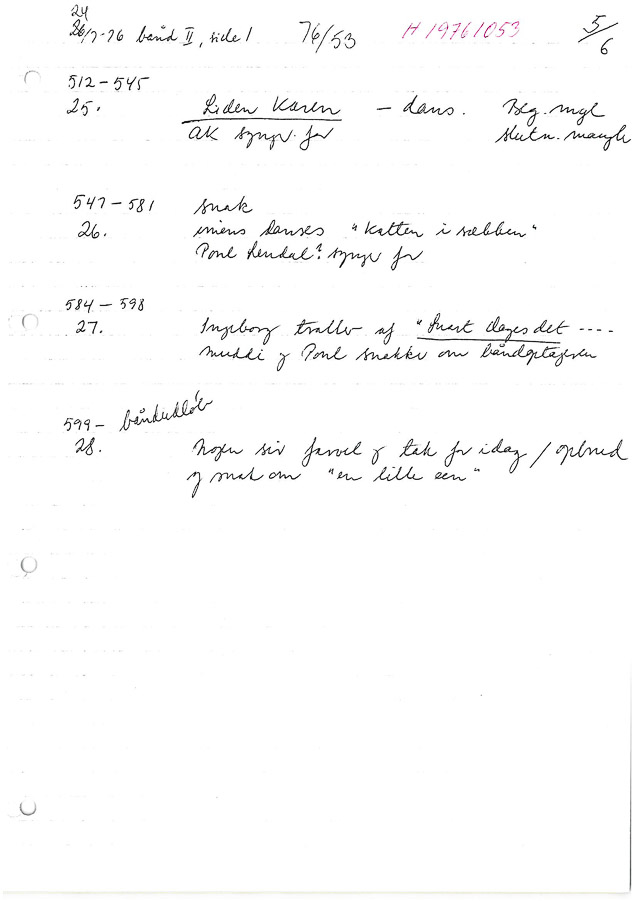 24
26/7-76 bånd II, side 1 76/53 H 19761053 5/6
512 - 545
25. Liden Karen - dans. Beg. mgl
AK synger for slutn. mangler
547 - 581 snak
26. imens danses "Katten i sækken"
Poul Lendal? synger for
584 - 598
27. Ingeborg traller af "Snart dages det ----
Muddi og Poul snakker om båndoptageren
599 - båndudløb
28. Nogen sir farvel og tak for idag / opbrud
og snak om "en lille een"